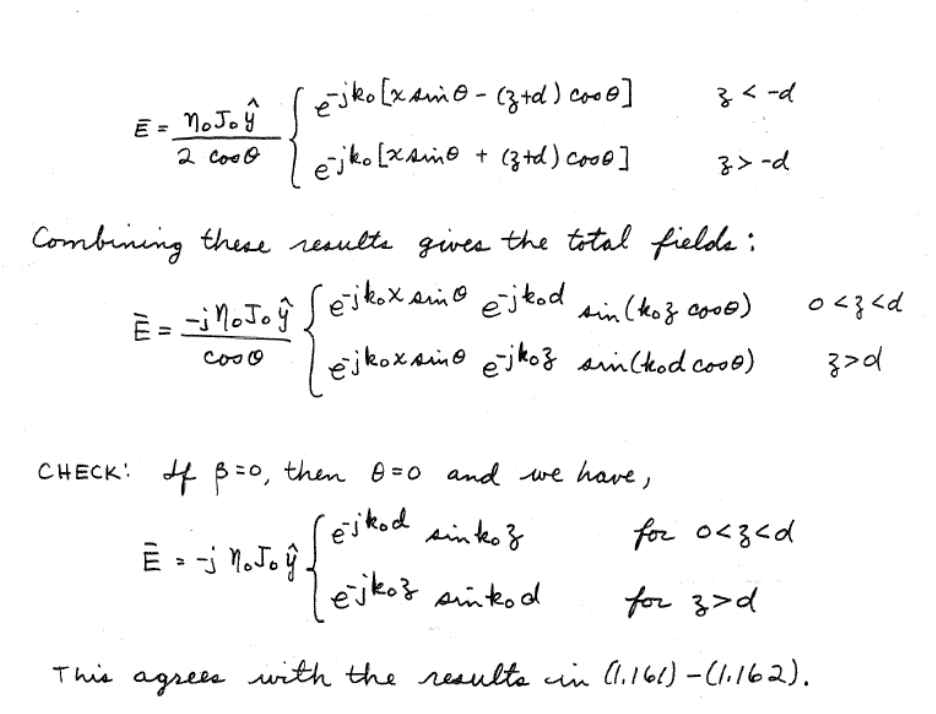 Ē = η₀J₀ŷ / 2 cosθ { e^-jk₀[x sinθ - (z+d) cosθ] z < -d
e^-jk₀[x sinθ + (z+d) cosθ] z > -d
Combining these results gives the total fields:
Ē = -jη₀J₀ŷ / cosθ { e^-jk₀x sinθ e^-jk₀d sin(k₀z cosθ) 0<z<d
e^-jk₀x sinθ e^-jk₀z sin(k₀d cosθ) z>d
CHECK: If β=0, then θ=0 and we have,
Ē = -j η₀J₀ŷ { e^-jk₀d sin k₀z for 0<z<d
e^-jk₀z sin k₀d for z>d
This agrees with the results in (1.161)-(1.162).